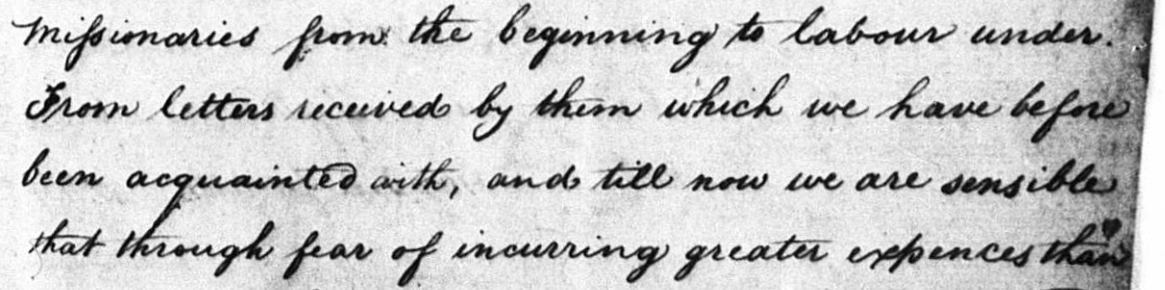 Missionaries from the beginning to labour under.
From letters received by them which we have before
been acquainted with, and till now we are sensible
that through fear of incurring greater expences than